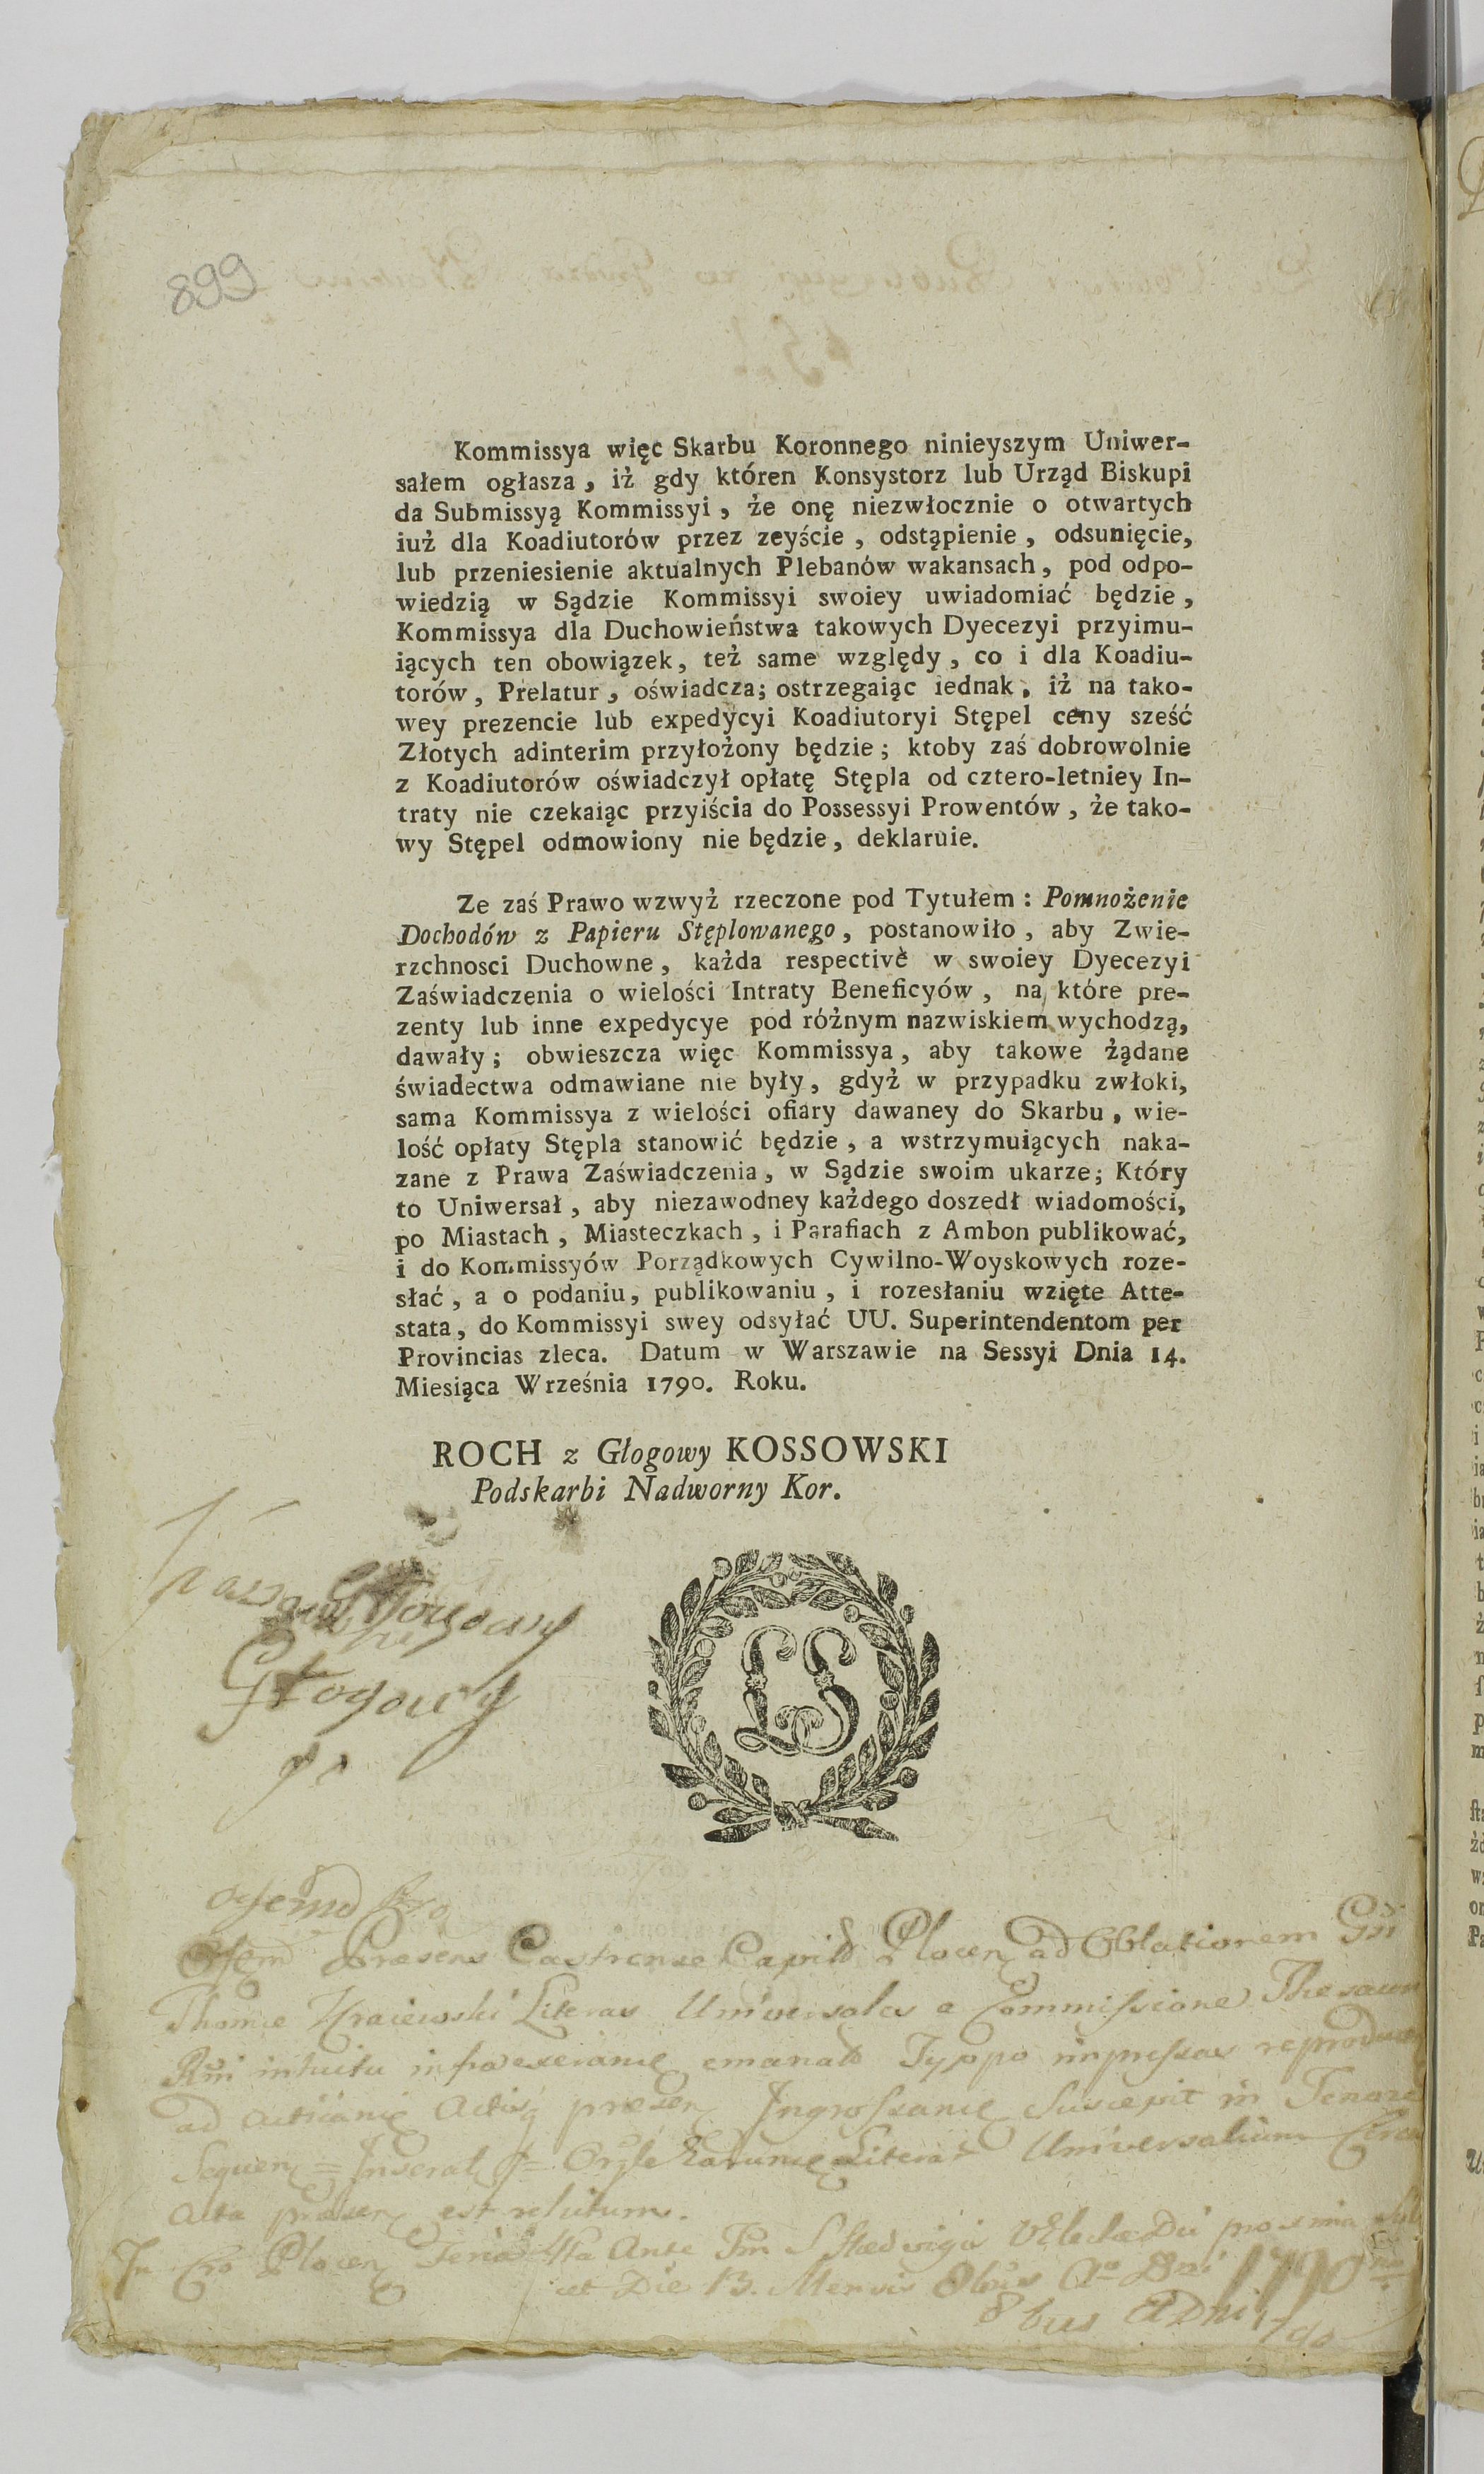 899
Kommissya więc Skarbu Koronnego ninieyszym Uniwer-
sałem ogłasza, iż gdy któren Konsystorz lub Urząd Biskupi
da Submissyą Kommissyi, że onę niezwłocznie o otwartych
iuż dla Koadiutorów przez zeyście, odstąpienie, odsunięcie,
lub przeniesienie aktualnych Plebanów wakansach, pod odpo-
wiedzią w Sądzie Kommissyi swoiey uwiadomiać będzie,
Kommissya dla Duchowieństwa takowych Dyecezyi przyimu-
iących ten obowiązek, też same względy, co i dla Koadiu-
torów, Prelatur, oświadcza; ostrzegaiąc iednak, iż na tako-
wey prezencie lub expedycyi Koadiutoryi Stępel ceny sześć
Złotych adinterim przyłożony będzie; ktoby zaś dobrowolnie
z Koadiutorów oświadczył opłatę Stępla od cztero-letniey In-
traty nie czekaiąc przyiścia do Possessyi Prowentów, że tako-
wy Stępel odmowiony nie będzie, deklaruie.
Ze zaś Prawo wzwyż rzeczone pod Tytułem: Pomnożenie
Dochodów z Papieru Stęplowanego, postanowiło, aby Zwie-
rzchnosci Duchowne, każda respectivè w swoiey Dyecezyi
Zaświadczenia o wielości Intraty Beneficyów, na które pre-
zenty lub inne expedycye pod różnym nazwiskiem wychodzą,
dawały; obwieszcza więc Kommissya, aby takowe żądane
świadectwa odmawiane nie były, gdyż w przypadku zwłoki,
sama Kommissya z wielości ofiary dawaney do Skarbu, wie-
lość opłaty Stępla stanowić będzie, a wstrzymuiących naka-
zane z Prawa Zaświadczenia, w Sądzie swoim ukarze; Który
to Uniwersał, aby niezawodney każdego doszedł wiadomości,
po Miastach, Miasteczkach, i Parafiach z Ambon publikować,
i do Kommissyów Porządkowych Cywilno-Woyskowych roze-
słać, a o podaniu, publikowaniu, i rozesłaniu wzięte Atte-
stata, do Kommissyi swey odsyłać UU. Superintendentom per
Provincias zleca. Datum w Warszawie na Sessyi Dnia 14.
Miesiąca Września 1790. Roku.
ROCH z Głogowy KOSSOWSKI
Podskarbi Nadworny Kor.
Głogowy
LS
præsens Castrense Capitle Plocen ad Oblationem
Thomæ Kraiewski Literas Universales a Commissione Thesauri
intuitu emanat Typpo impressas
ad præsen Ingrossand suscepit in Tenore
Sequen Literar Universalium
Acta præsen est
Plocen Feria 4ta Ante S Hedvigis Electæ proxima
Die 13. Mensis 8bris Ao Dni 1790
8bris A Dni 1790